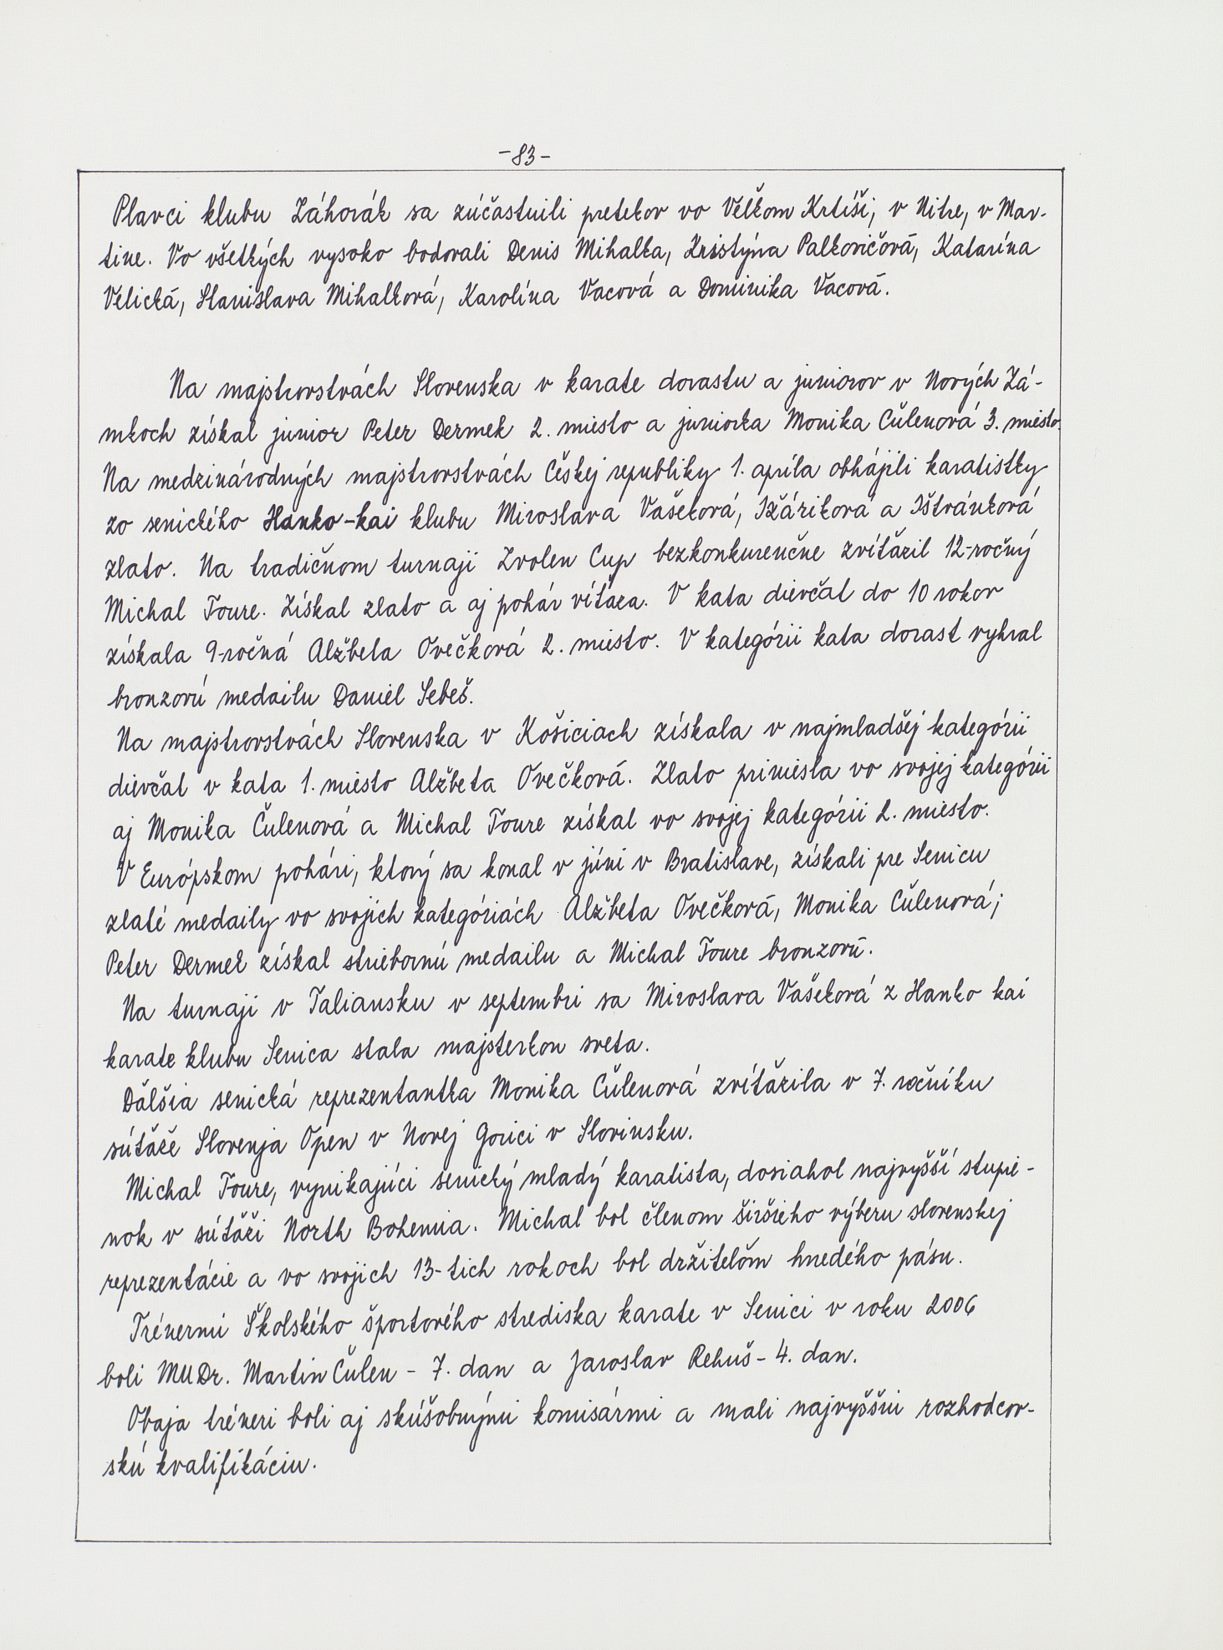 -83-
Plavci klubu Záhorák sa zúčastnili pretekov vo Veľkom Krtíši, v Nitre, v Mar-
tine. Vo všetkých vysoko bodovali Denis Mihalka, Kristýna Palkovičová, Katarína
Velická, Stanislava Mihalková, Karolína Vacová a Dominika Vacová.
Na majstrovstvách Slovenska v karate dorastu a juniorov v Nových Zá-
mkoch získal junior Peter Dermek 2. miesto a juniorka Monika Čulenová 3. miesto.
Na medzinárodných majstrovstvách Českej republiky 1. apríla obhájili karatistky
zo senického Hanko-kai klubu Miroslava Vašeková, Ižáriková a Ištránková
zlato. Na tradičnom turnaji Zvolen Cup bezkonkurenčne zvíťazil 12-ročný
Michal Toure. Získal zlato a aj pohár víťaza. V kata dievčat do 10 rokov
získala 9-ročná Alžbeta Ovečková 2. miesto. V kategórii kata dorast vyhral
bronzovú medailu Daniel Sebeš.
Na majstrovstvách Slovenska v Košiciach získala v najmladšej kategórii
dievčat v kata 1. miesto Alžbeta Ovečková. Zlato priniesla vo svojej kategórii
aj Monika Čulenová a Michal Toure získal vo svojej kategórii 2. miesto.
V Európskom pohári, ktorý sa konal v júni v Bratislave, získali pre Senicu
zlaté medaily vo svojich kategóriách Alžbeta Ovečková, Monika Čulenová;
Peter Dermek získal striebornú medailu a Michal Toure bronzovú.
Na turnaji v Taliansku v septembri sa Miroslava Vašeková z Hanko kai
karate klubu Senica stala majsterkou sveta.
Ďalšia senická reprezentantka Monika Čulenová zvíťazila v 7. ročníku
súťaže Slovenja Open v Novej Gorici v Slovinsku.
Michal Toure, vynikajúci senický mladý karatista, dosiahol najvyšší stupie-
nok v súťaži North Bohemia. Michal bol členom širšieho výberu slovenskej
reprezentácie a vo svojich 13-tich rokoch bol držiteľom hnedého pásu.
Trénermi Školského športového strediska karate v Senici v roku 2006
boli MUDr. Martin Čulen - 7. dan a Jaroslav Rehuš - 4. dan.
Obaja tréneri boli aj skúšobnými komisármi a mali najvyššiu rozhodcov-
skú kvalifikáciu.